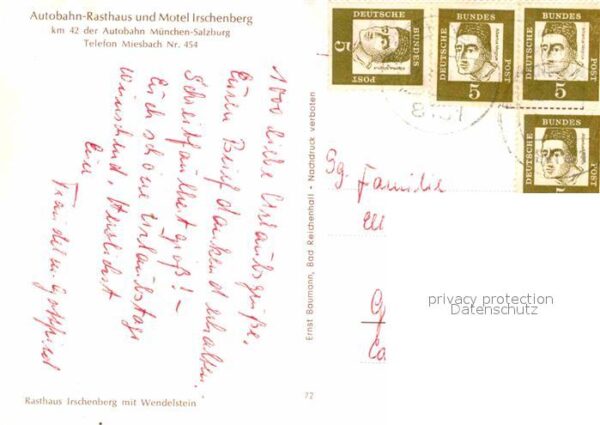 Autobahn-Rasthaus und Motel Irschenberg
km 42 der Autobahn München-Salzburg
Telefon Miesbach Nr. 454
1000 liebe Urlaubsgrüße.
Euren Brief dankend erhalten.
Schreibfaulheit groß! —
Euch schöne Urlaubstage
wünschend, Herzlichst
Eure
Rasthaus Irschenberg mit Wendelstein
72
Ernst Baumann, Bad Reichenhall • Nachdruck verboten
DEUTSCHE BUNDES POST
5
DEUTSCHE BUNDES POST
5
DEUTSCHE BUNDES POST
5
DEUTSCHE BUNDES POST
Familie
privacy protection
Datenschutz